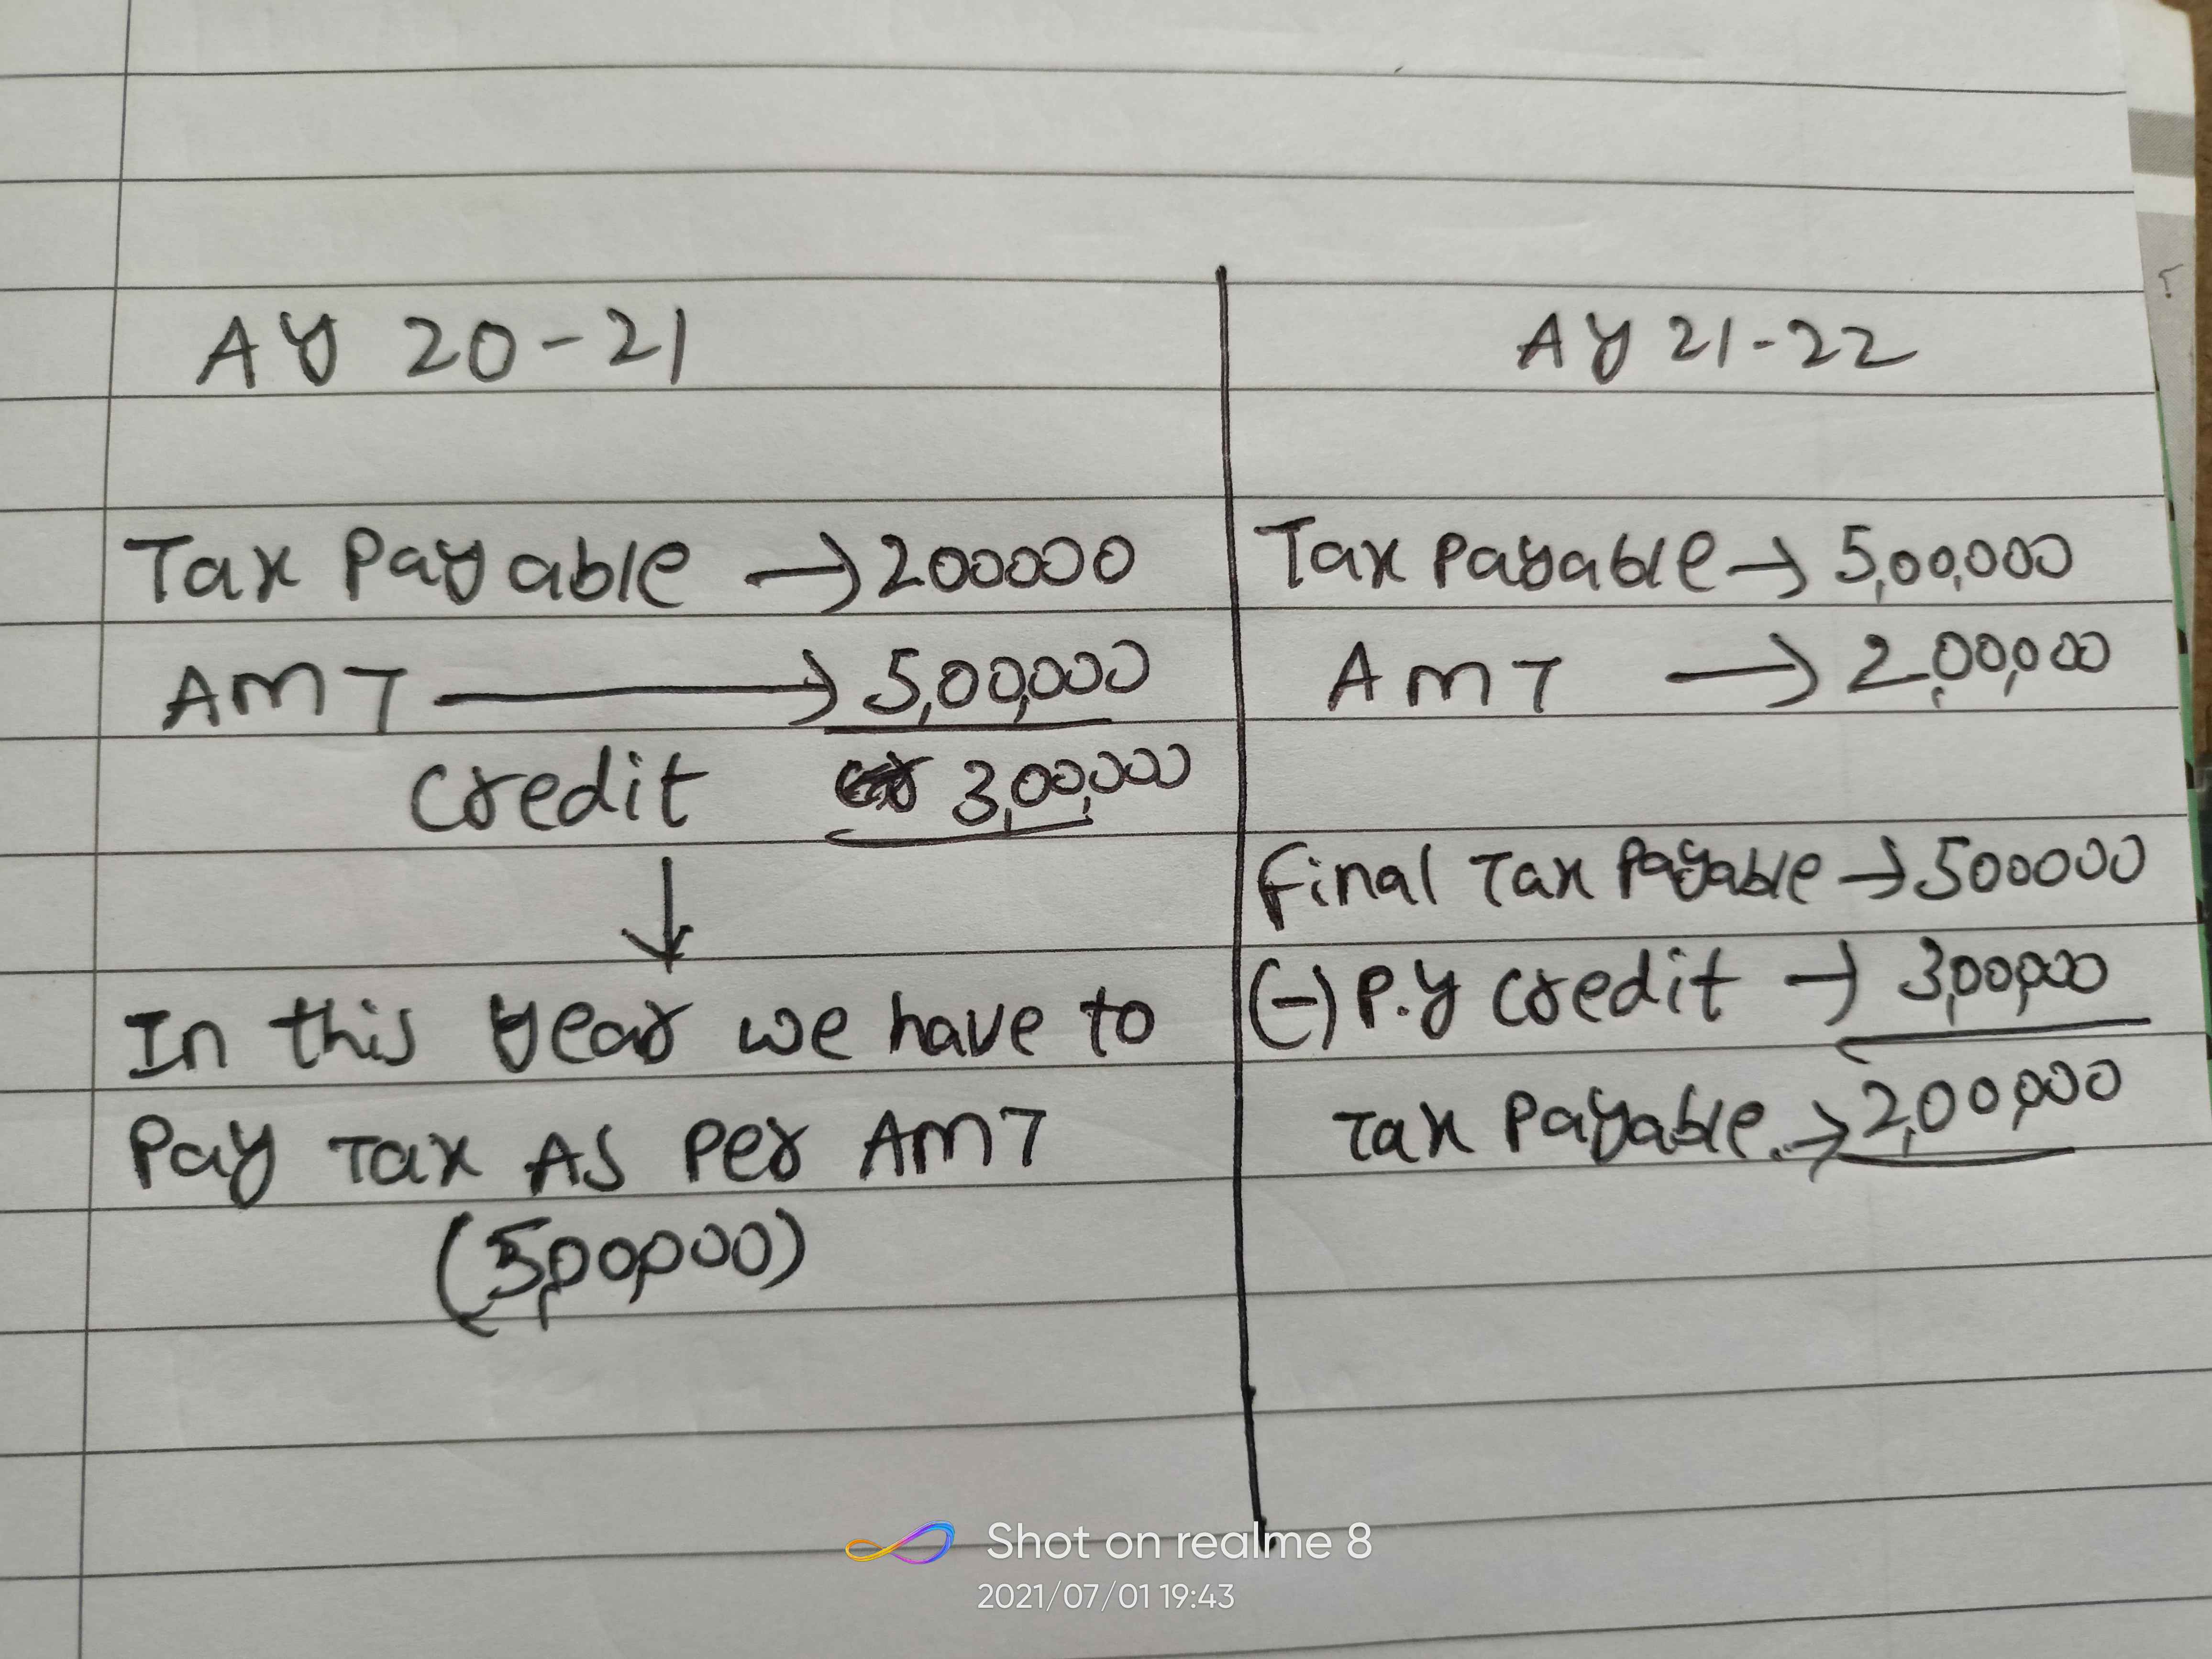 AY 20-21
Tax Payable → 200000
AMT → 5,00,000
Credit 3,00,000
↓
In this year we have to
Pay Tax As Per AMT
(5,00,000)
AY 21-22
Tax Payable → 5,00,000
AMT → 2,00,000
Final Tax Payable → 500000
(-) P.Y Credit → 3,00,000
Tax Payable. → 2,00,000
Shot on realme 8
2021/07/01 19:43